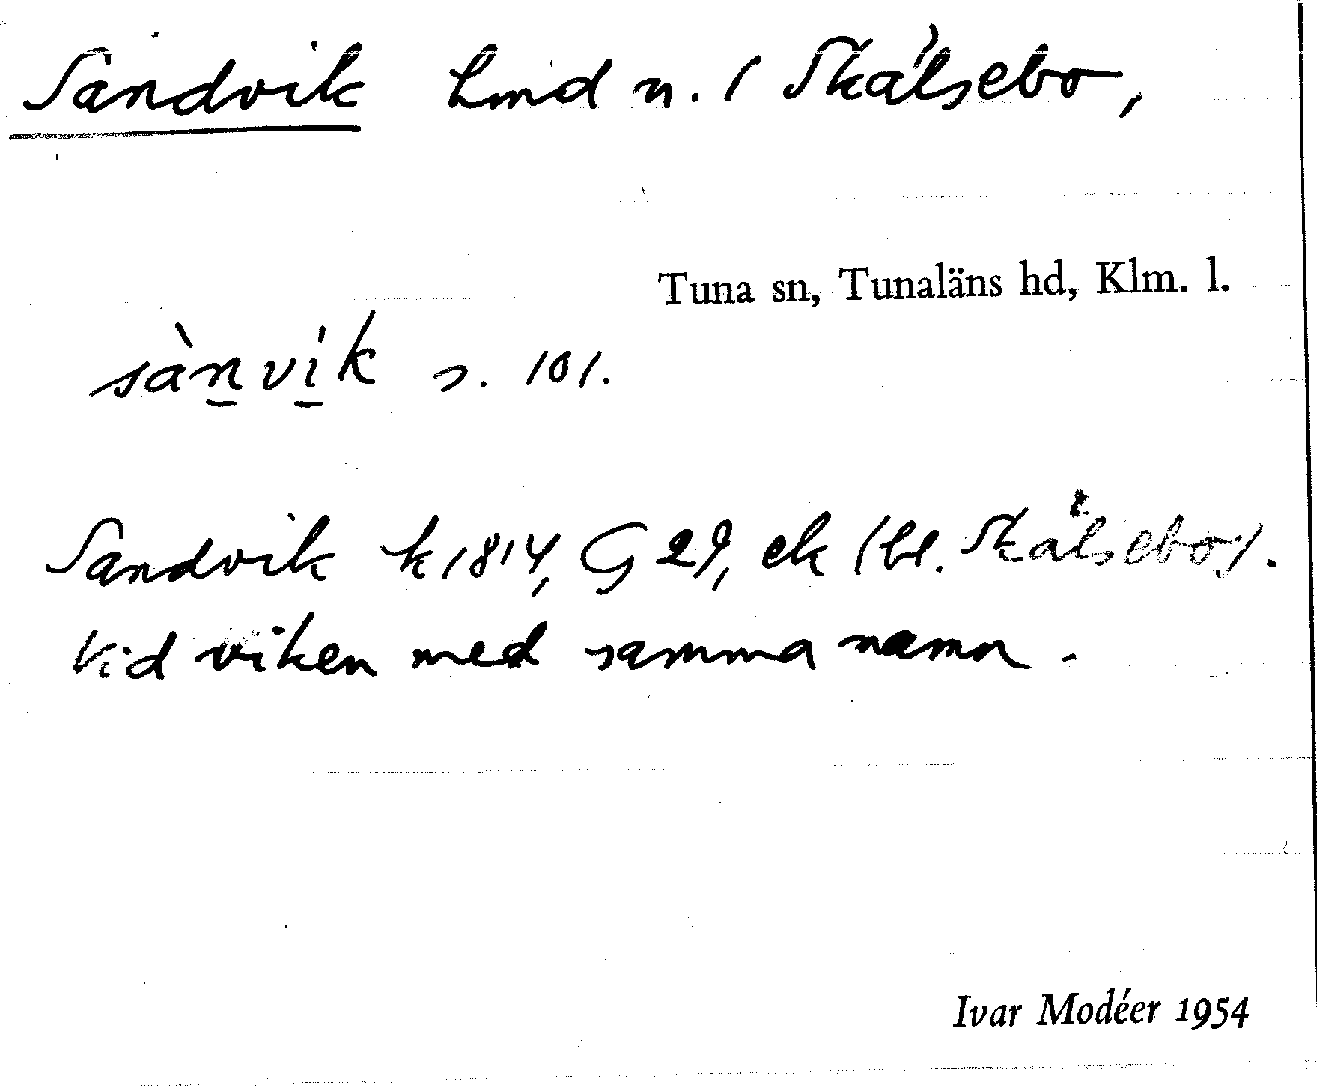 Sandvik lmd n. ( Skälsebo,
Tuna sn, Tunaläns hd, Klm. l.
sàn̲vi̲k s. 101.
Sandvik k 1814, G 29, ek (bl. Skälsebo).
Vid viken med samma namn.
Ivar Modéer 1954